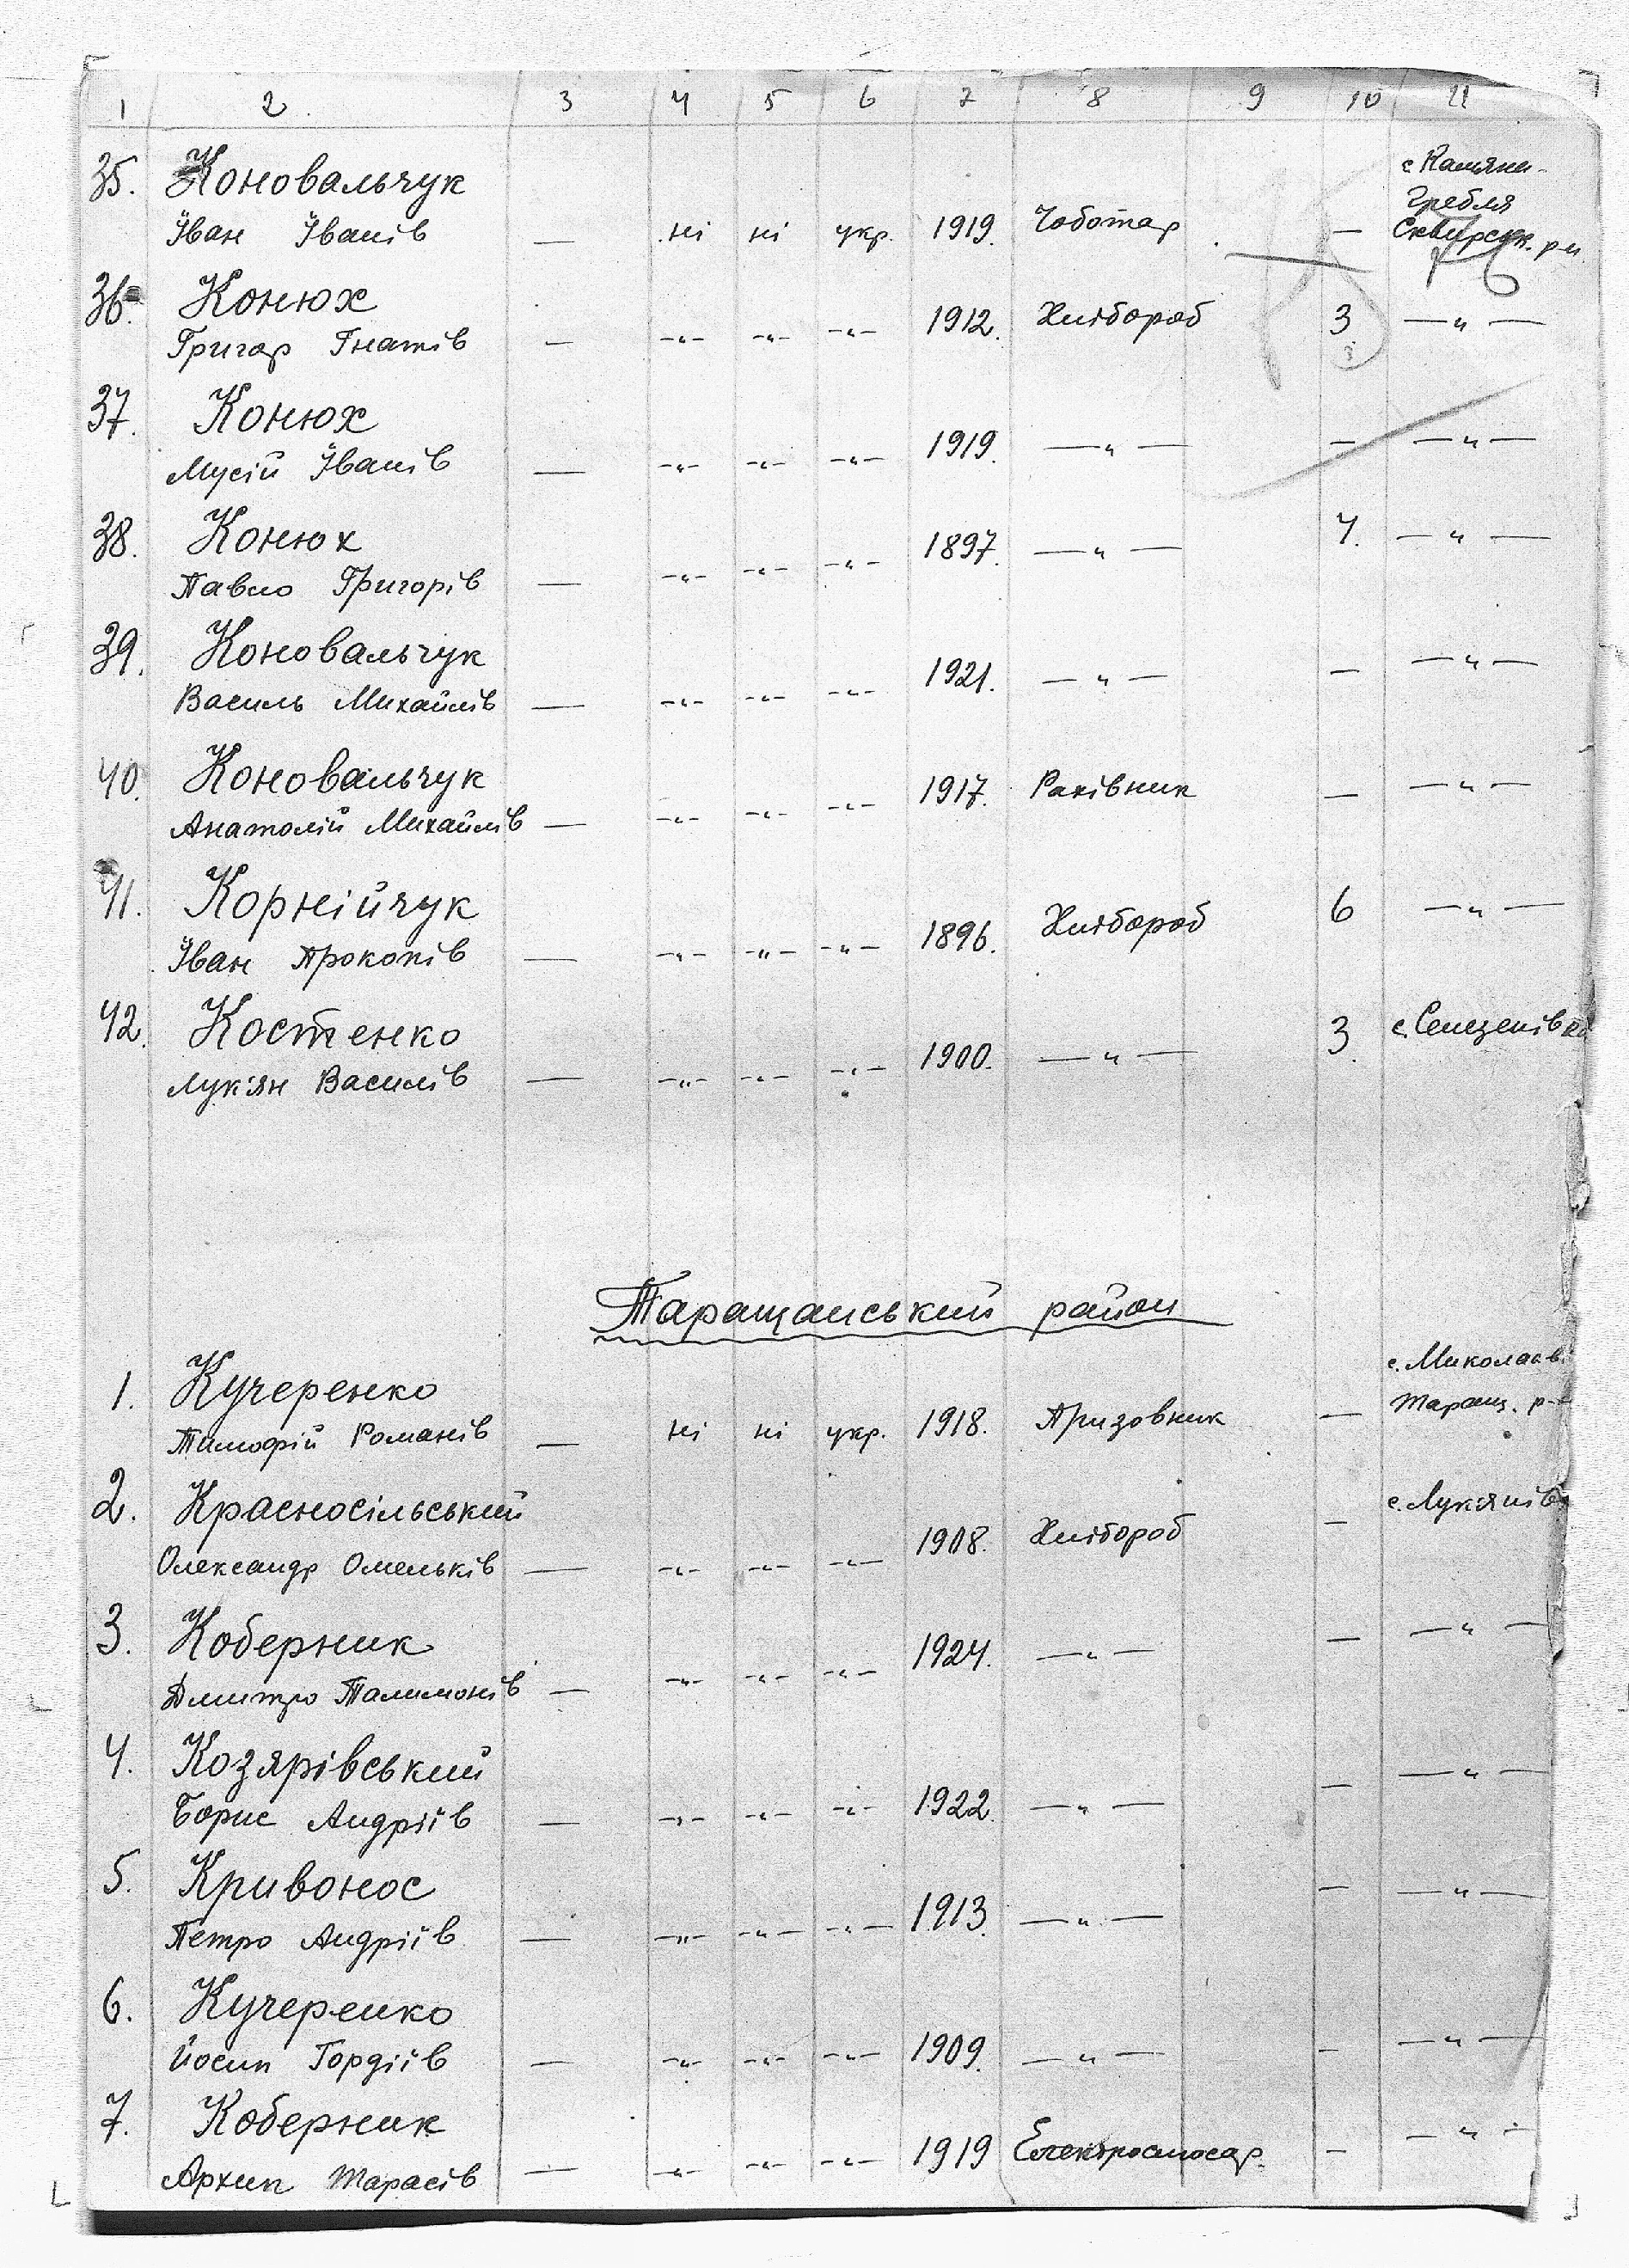 1 2. 3 4 5 6 7 8 9 10 11
35. Коновальчук с Камяна-
Гребля
Іван Іванів — ні ні укр. 1919. Чоботар — Сквирськ. р-н
36. Конюх
Григор Гнатів — -"- -"- -"- 1912. Хлібороб 3 —"—
37. Конюх
Мусій Іванів — -"- -"- -"- 1919. —"— — —"—
38. Конюх
Павло Григорів — -"- -"- -"- 1897. —"— 4. —"—
39. Коновальчук
Василь Михайлів — -"- -"- -"- 1921. —"— — —"—
40. Коновальчук
Анатолій Михайлів — -"- -"- -"- 1917. Рахівник — —"—
41. Корнійчук
Іван Прокопів — -"- -"- -"- 1896. Хлібороб 6 —"—
42. Костенко с. Селезенівка
Лук'ян Василів — -"- -"- -"- 1900. —"— 3.
Таращанський район
1. Кучеренко с. Миколаїв
Тимофій Романів — ні ні укр. 1918. Призовник — Таращ. р-н
2. Красносільський с. Лук'янів
Олександр Омельків — -"- -"- -"- 1908. Хлібороб —
3. Коберник
Дмитро Талимонів — -"- -"- -"- 1924. —"— — —"—
4. Козярівський
Борис Андріїв — -"- -"- -"- 1922. —"— — —"—
5. Кривонос
Петро Андріїв — -"- -"- -"- 1913. —"— — —"—
6. Кучеренко
Йосип Гордіїв — -"- -"- -"- 1909. —"— — —"—
7. Коберник
Архип Тарасів — -"- -"- -"- 1919 Електрослюсар. — —"—